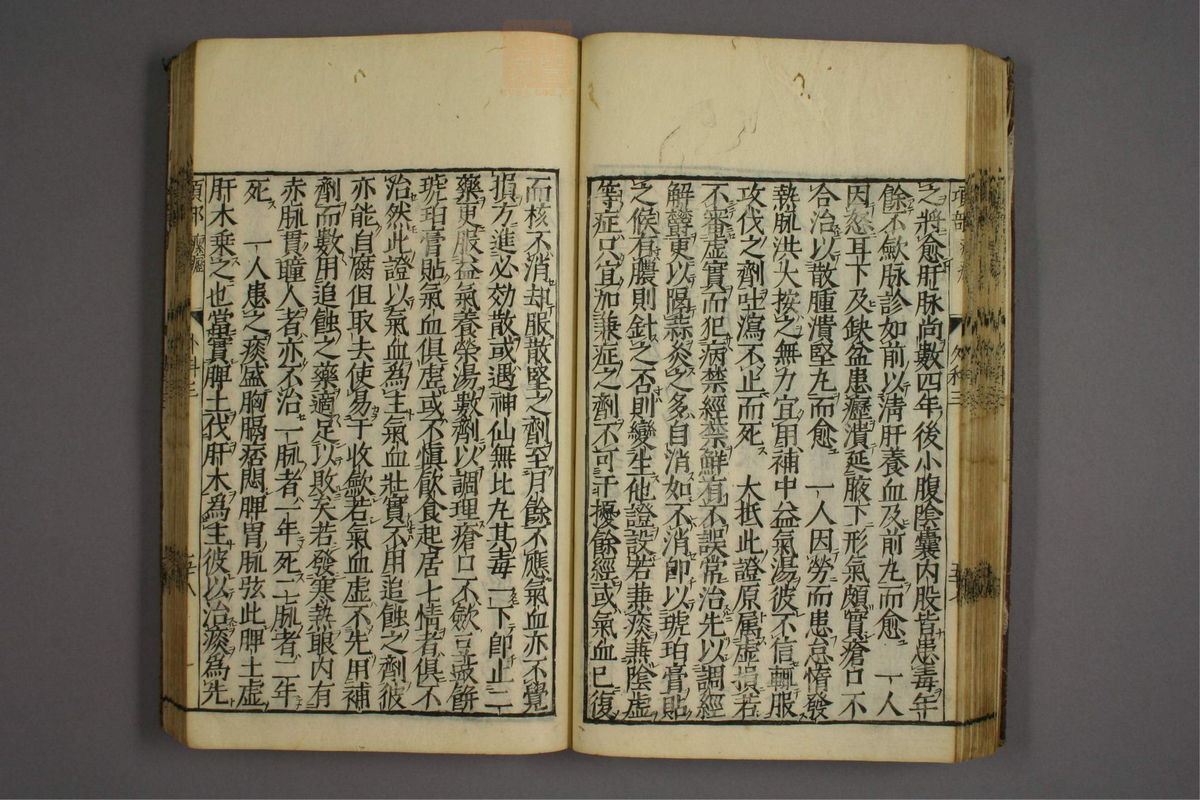 之將愈肝脉尚數四年後小腹陰囊内股皆患毒年
餘不歛脉診如前以清肝養血及前九而愈 一人
因怒耳下及缺盆患癧潰延腋下形氣頗實瘡口不
合治以散腫潰堅九而愈 一人因勞而患怠惰發
熱脉洪大按之無力宜用補中益氣湯彼不信輒服
攻伐之劑吐瀉不止而死 大抵此證原属虚損若
不審虚實而犯病禁經禁鮮有不誤常治先以調經
解欝更以隔蒜灸之多自消如不消即以琥珀膏貼
之候有膿則針之否則變生他證設若兼痰兼陰虚
等症只宜加兼症之劑不可干擾餘經或氣血已復
而核不消却服散堅之劑至月餘不應氣血亦不覺
損方進必効散或遇神仙無比九其毒一下即止二
藥更服益氣養榮湯數劑以調理瘡口不歛豆豉餅
琥珀膏貼氣血俱虚或不慎飲食起居七情者俱不
治然此證以氣血為主氣血壯實不用追蝕之劑彼
亦能自腐但取去使易于收歛若氣血虚不先用補
劑而數用追蝕之藥適足以敗矣若發寒熱眼内有
赤脉貫瞳人者亦不治一脉者一年死二脉者二年
死 一人患之痰盛胸膈痞悶脾胃脉弦此脾土虚
肝木乘之也當實脾土伐肝木為主彼以治痰為先
項部
外科三
五十八